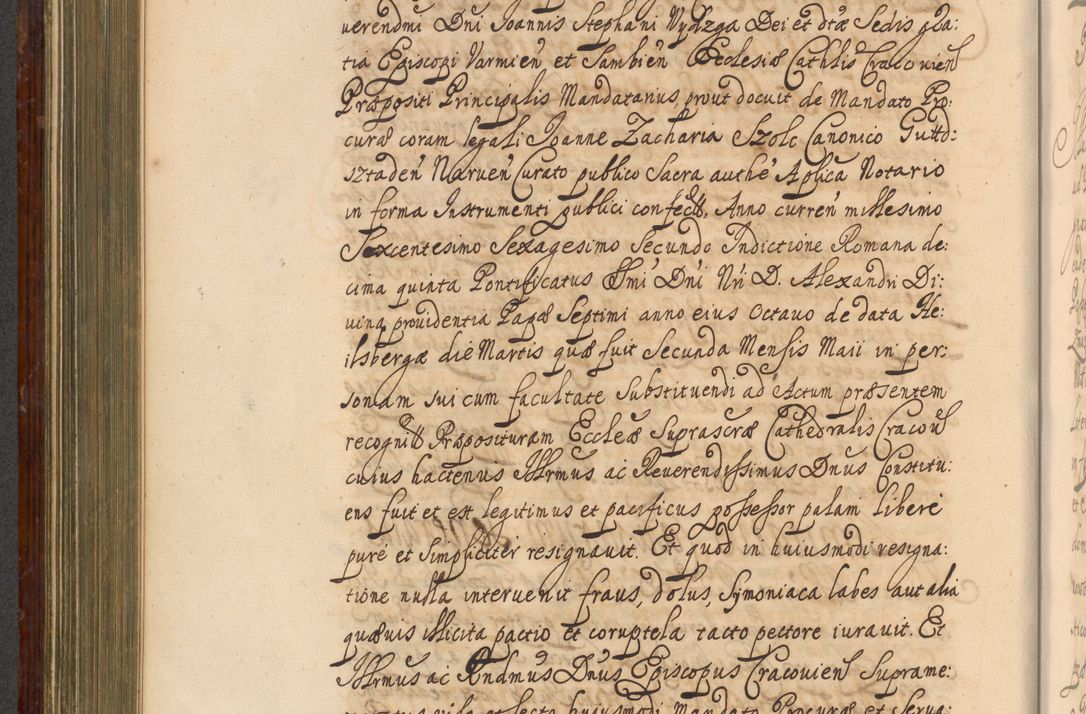 verendmi Dni Joannis Stephani Wydzga Dei et dtæ Sedis gra:
tia Episcopi Varmien et Sambien Ecclesiæ Cathlis Cracovien
Præpositi Principalis Mandatarius, prout docuit de Mandato Pro:
curæ coram legali Joanne Zacharia Szolc Canonico Guttd:
sztaden Narven Curato publico Sacra authe Aplica Notario
in forma Instrumenti publici confect, Anno curren millesimo
Sexcentesimo Sexagesimo Secundo Indictione Romana de:
cima quinta Pontificatus Ssmi Dni Nri D. Alexandri Di:
vina providentia Papæ Septimi anno eius Octavo de data He:
ilsbergæ die Martis quæ fuit Secunda Mensis Maii in per:
sonam sui cum facultate Substituendi ad Actum præsentem
recognit Præposituram Eccleæ Suprascræ Cathedralis Cracovien
cuius hactenus Illrmus ac Reverendissimus Dnus Constitu:
ens fuit et est legitimus et pacificus possessor palam liberè
purè et Simpliciter resignavit. Et quod in huiusmodi resigna:
tione nulla intervenit fraus, dolus, Symoniaca labes aut alia
quævis illicita pactio et coruptela tacto pectore iuravit. Et
Illrmus ac Rndmus Dnus Episcopus Cracovien Suprame:
huiusmodi Mandato Procuræ et Serva: